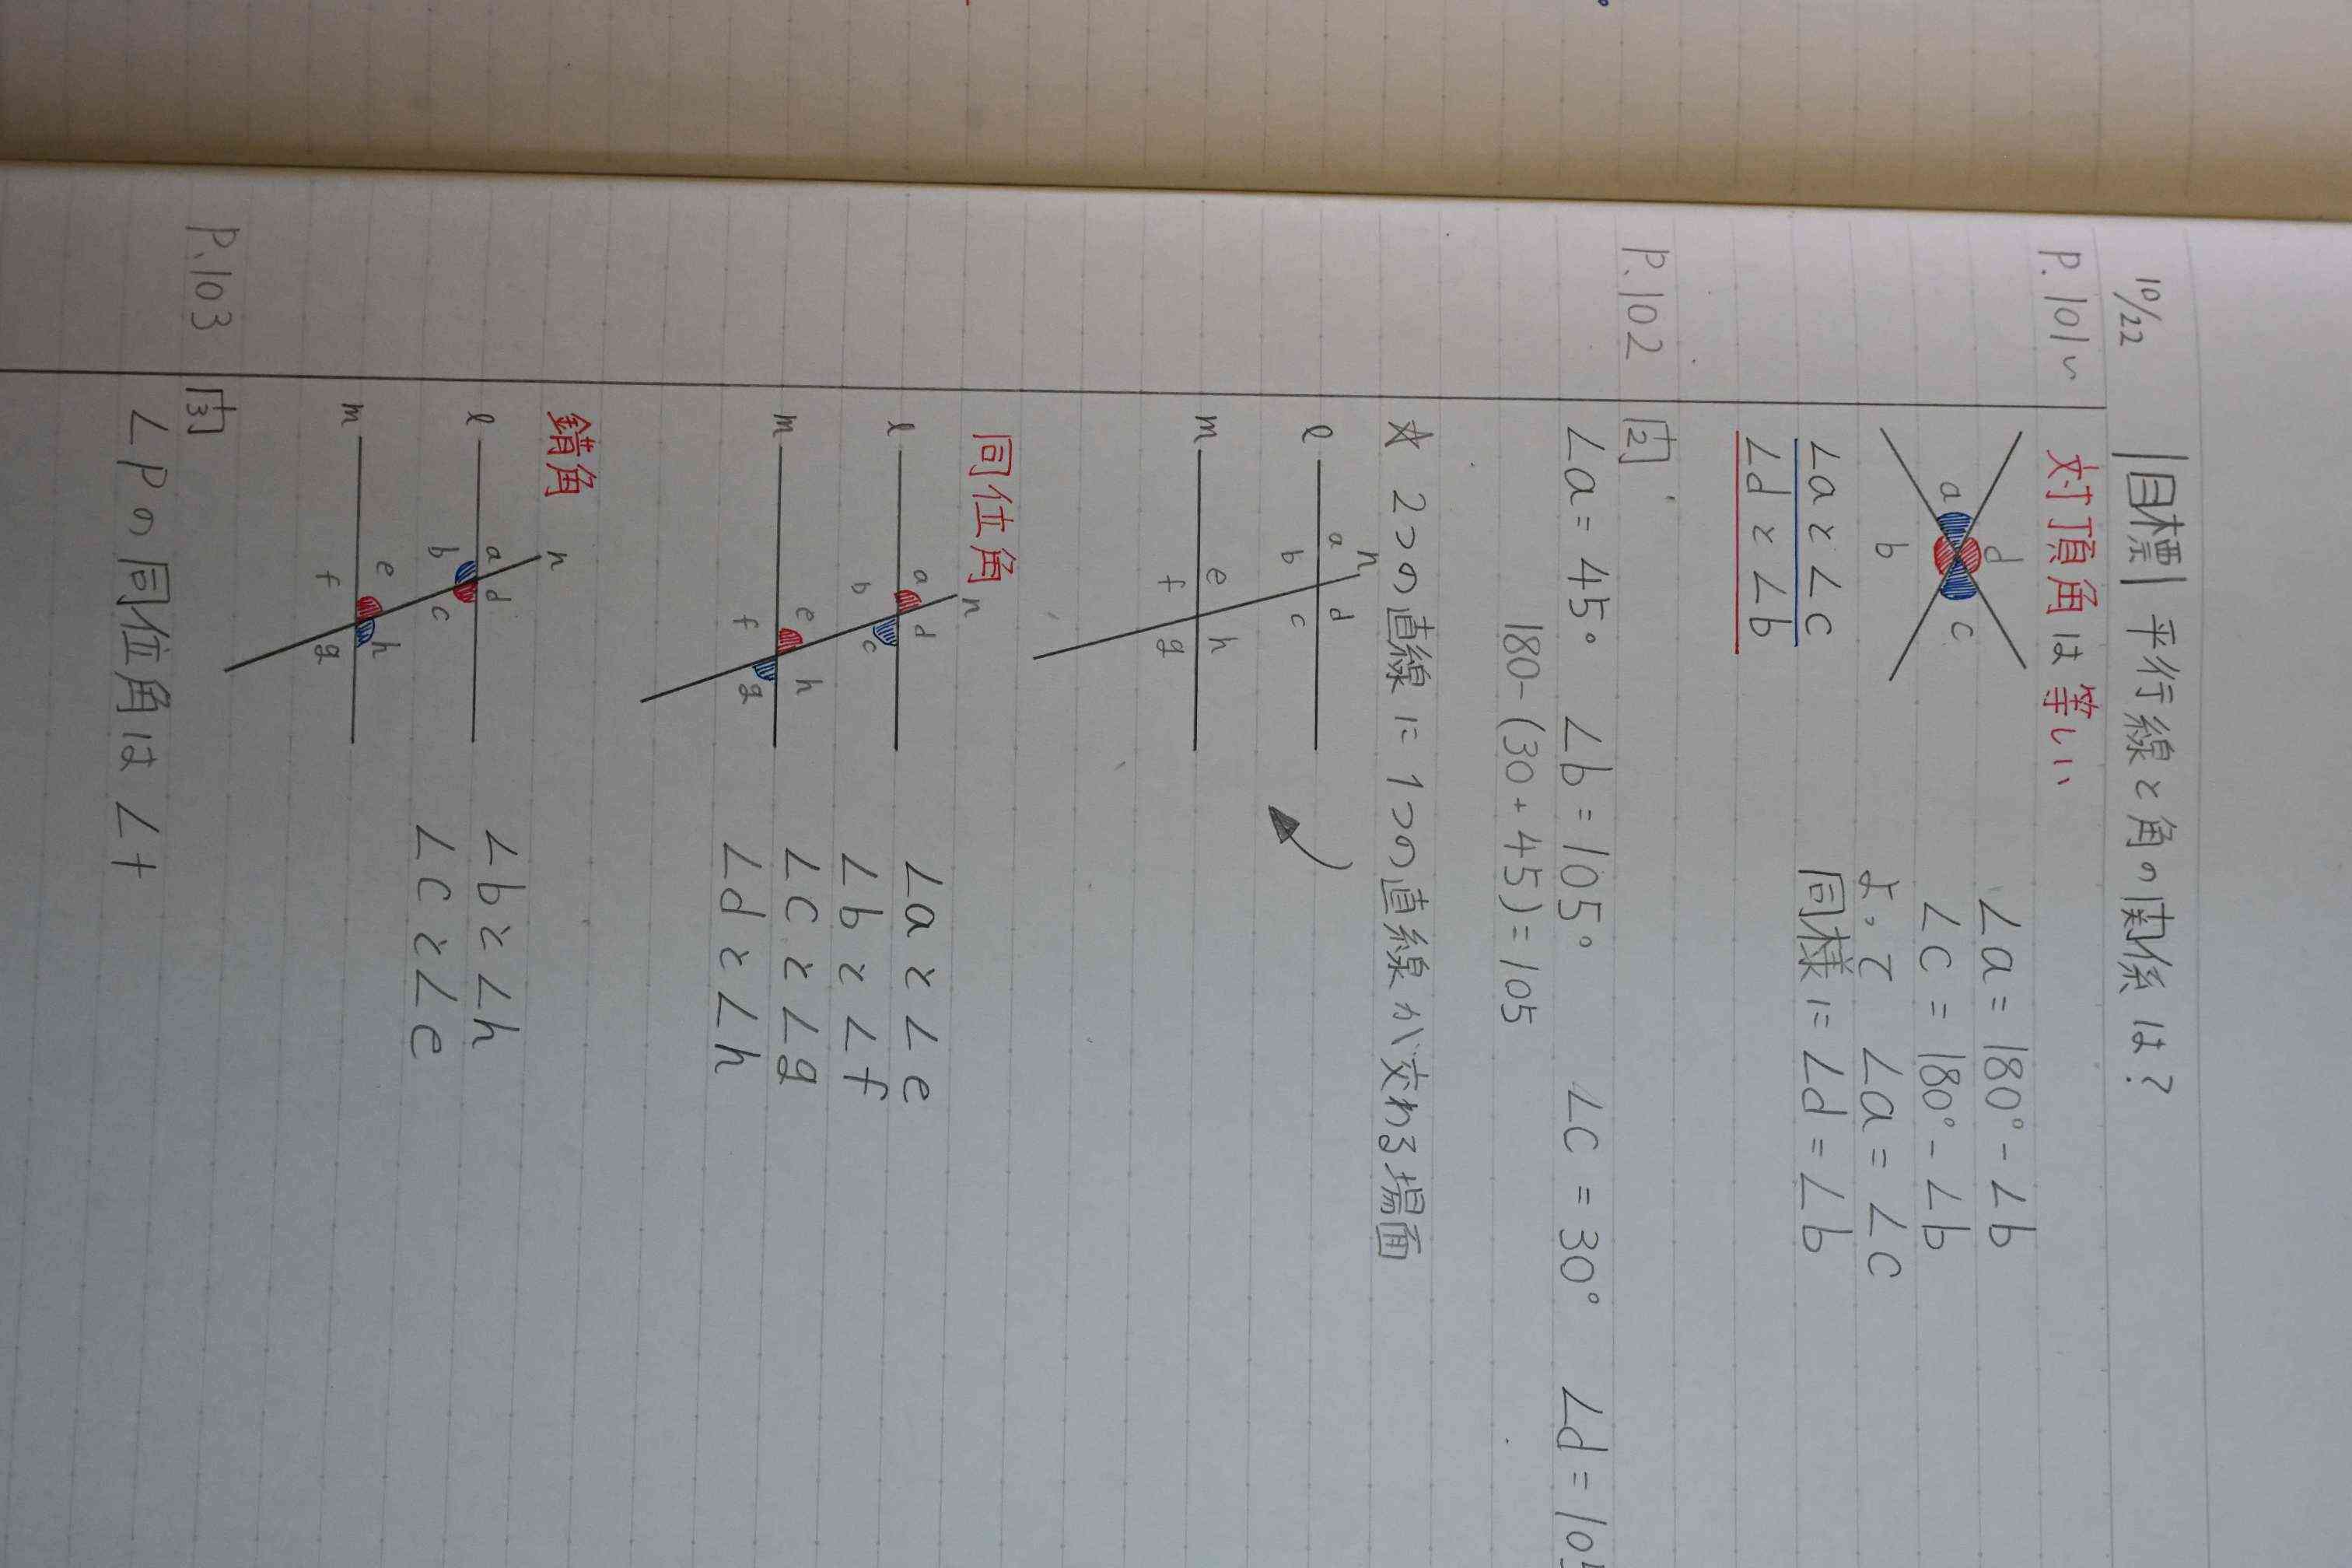 10/22 目標 平行線と角の関係は?
P.101~ 対頂角は等しい
a d c b
∠a=180°-∠b
∠c=180°-∠b
よって ∠a=∠c
同様に ∠d=∠b
∠aと∠c
∠dと∠b
P.102 問2
∠a=45° ∠b=105° ∠c=30° ∠d=105
180-(30+45)=105
☆ 2つの直線に1つの直線が交わる場面
n
ℓ a d
b c
m e h
f g
同位角
n
ℓ a d
b c
m e h
f g
∠aと∠e
∠bと∠f
∠cと∠g
∠dと∠h
錯角
n
ℓ a d
b c
m e h
f g
∠bと∠h
∠cと∠e
P.103 問3
∠Pの同位角は ∠t